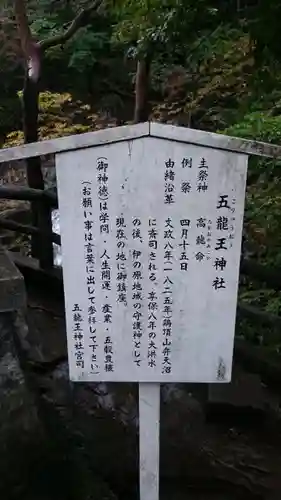 五龍王神社
ごりゅうおう
主祭神 高龗命
例祭 四月十五日
由緒沿革 文政八年(一八二五年)鶏頂山弁天沼
に斉司される。享保八年の大洪水
の後、伊の原地域の守護神として
現在の地に御鎮座。
(御神徳)は学問・人生開運・産業・五穀豊穣
(お願い事は言葉に出して参拝して下さい)
五龍王神社宮司